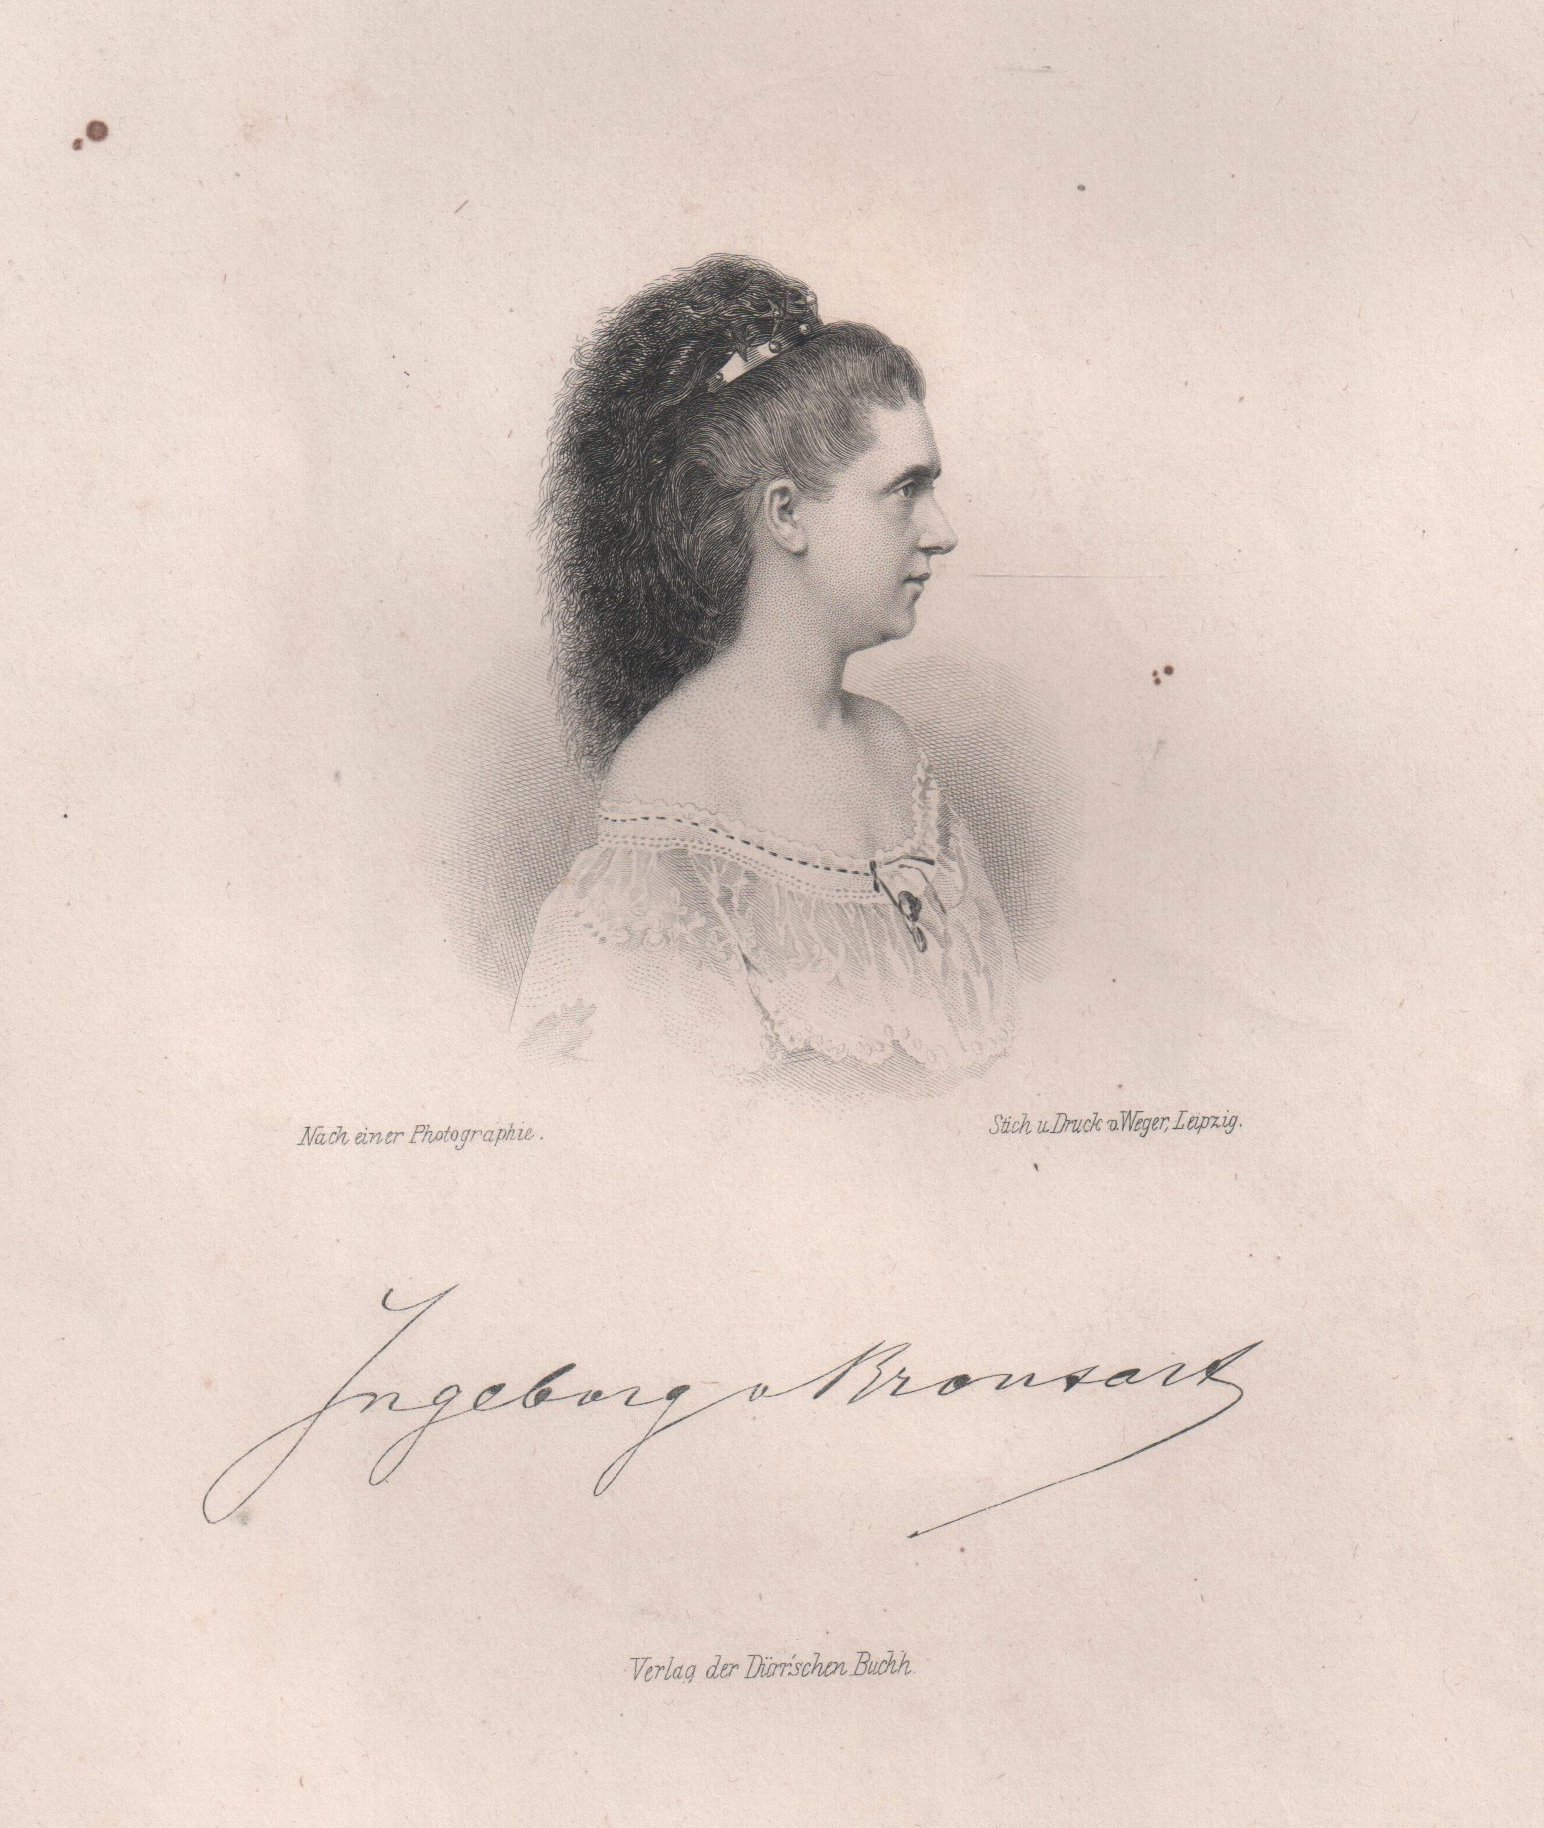 Nach einer Photographie.
Stich u. Druck v. Weger, Leipzig.
Ingeborg v Bronsart
Verlag der Dürr'schen Buchh.